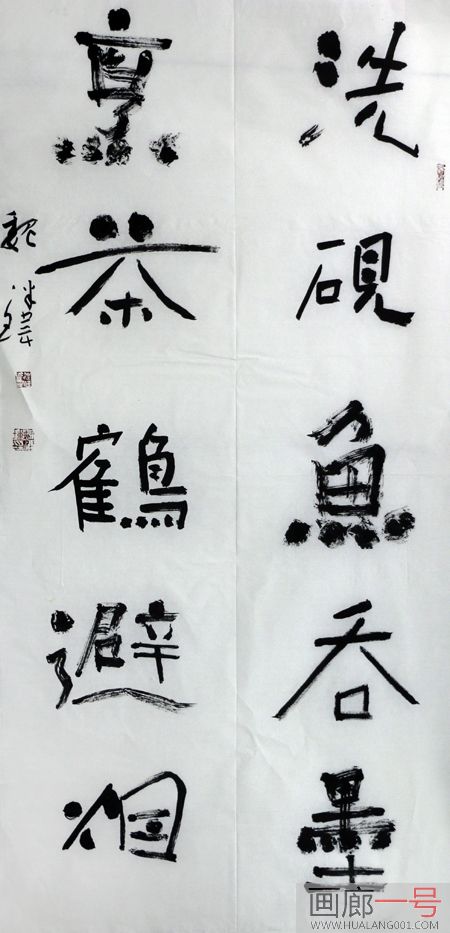 洗硯魚吞墨
烹茶鶴避烟
画廊一号
WWW.HUALANG001.COM